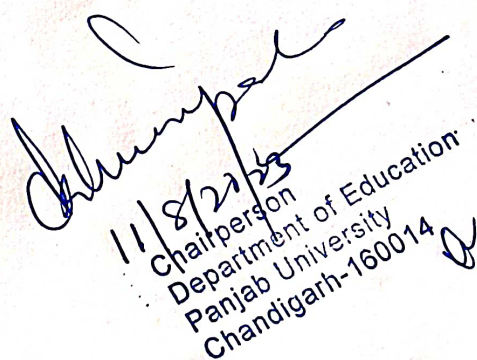 11/8/2023
Chairperson
Department of Education
Panjab University
Chandigarh-160014